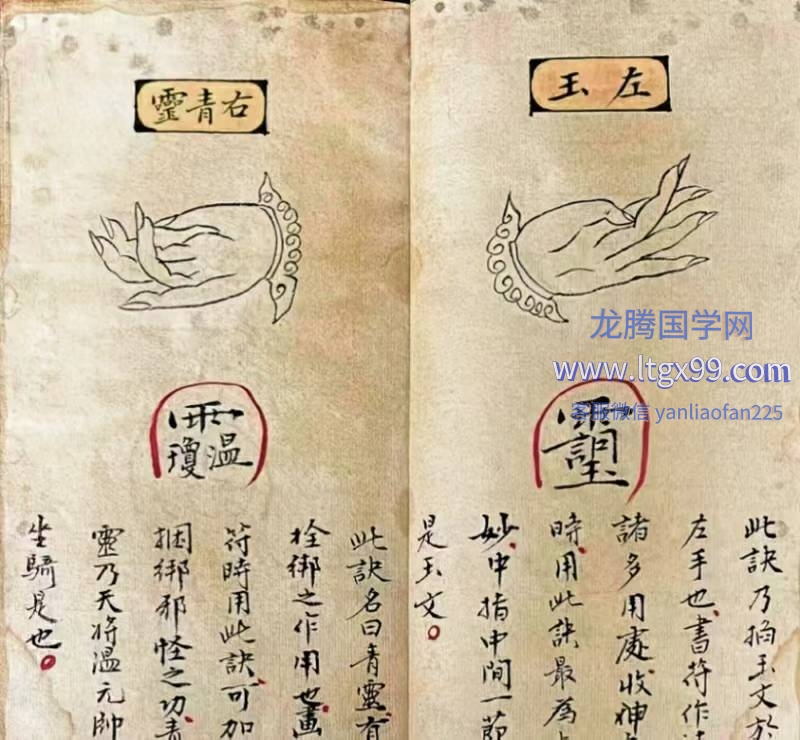 左玉
此訣乃掐玉文於
左手也書符作
諸多用處收神
時用此訣最為
妙中指中間一節
是玉文。
右青靈
此訣名曰青靈有
拴綁之作用也畫
符時用此訣可加
捆綁邪怪之功青
靈乃天將溫元帥
坐騎是也。
龙腾国学网
www.ltgx99.com
客服微信 yanliaofan225